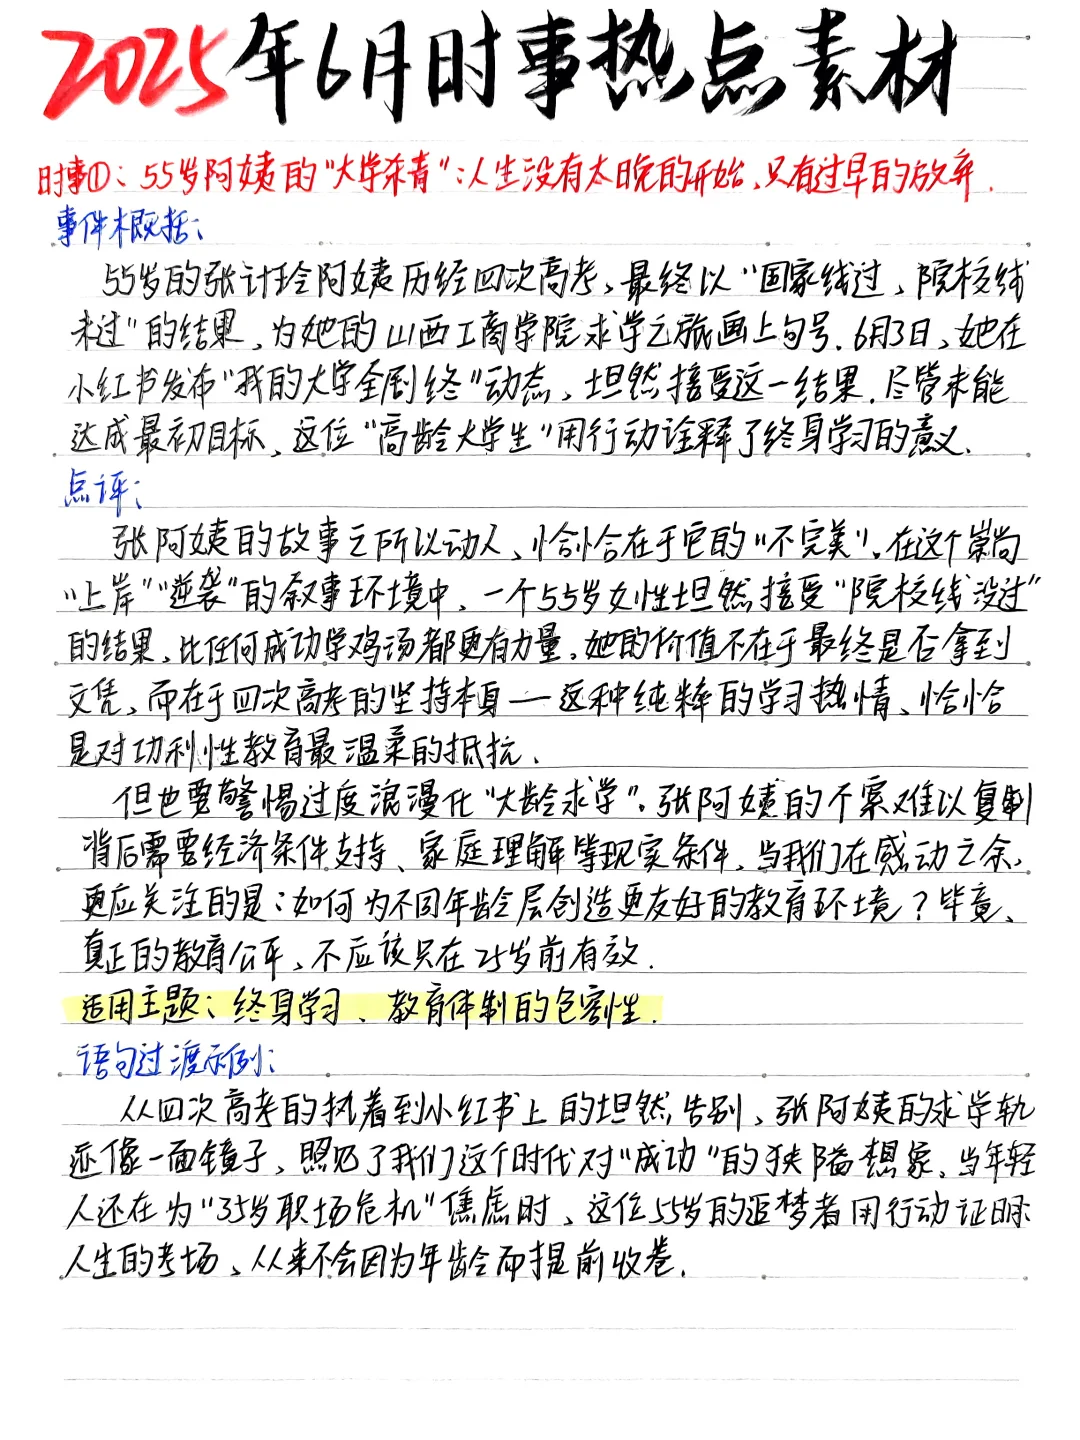 2025年6月时事热点素材
时事①：55岁阿姨的“大学杀青”：人生没有太晚的开始，只有过早的放弃.
事件概括：
55岁的张计玲阿姨历经四次高考，最终以“国家线过，院校线
未过”的结果，为她的山西工商学院求学之旅画上句号.6月3日，她在
小红书发布“我的大学全剧终”动态，坦然接受这一结果.尽管未能
达成最初目标，这位“高龄大学生”用行动诠释了终身学习的意义.
点评：
张阿姨的故事之所以动人，恰恰在于它的“不完美”.在这个崇尚
“上岸”“逆袭”的叙事环境中，一个55岁女性坦然接受“院校线没过”
的结果，比任何成功学鸡汤都更有力量.她的价值不在于最终是否拿到
文凭，而在于四次高考的坚持本身——这种纯粹的学习热情，恰恰
是对功利性教育最温柔的抵抗.
但也要警惕过度浪漫化“大龄求学”.张阿姨的个案难以复制
背后需要经济条件支持、家庭理解等现实条件，当我们在感动之余，
更应关注的是：如何为不同年龄层创造更友好的教育环境？毕竟，
真正的教育公平，不应该只在25岁前有效.
适用主题：终身学习、教育体制的包容性.
语句过渡示例：
从四次高考的执着到小红书上的坦然告别，张阿姨的求学轨
迹像一面镜子，照见了我们这个时代对“成功”的狭隘想象.当年轻
人还在为“35岁职场危机”焦虑时，这位55岁的追梦者用行动证明
人生的考场，从来不会因为年龄而提前收卷.